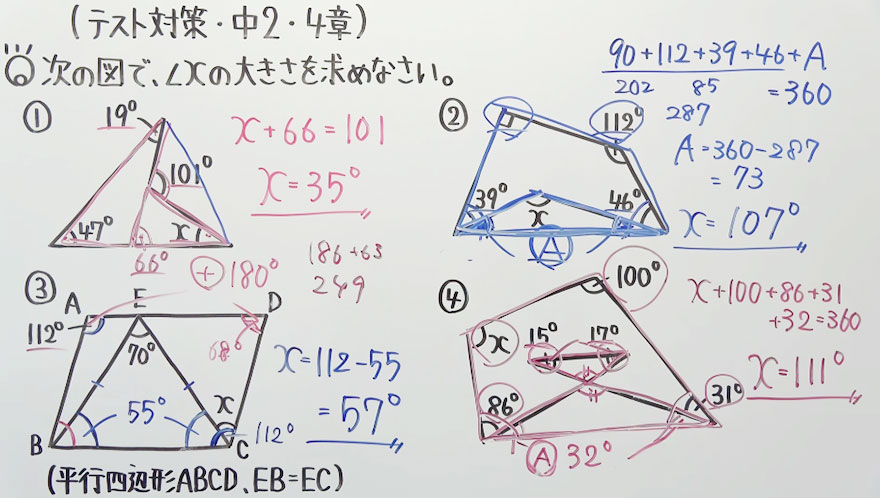 (テスト対策・中2・4章)
次の図で、∠xの大きさを求めなさい。
①
19°
101°
47°
x
66°
x+66=101
x=35°
②
112°
39°
46°
x
A
90+112+39+46+A
202 85
=360
287
A=360-287
=73
x=107°
③
A E D
112°
70°
68°
55°
x
B C
112°
⊕180°
186+63
249
x=112-55
=57°
(平行四辺形ABCD、EB=EC)
④
100°
x
15° 17°
86°
31°
A 32°
x+100+86+31
+32=360
x=111°